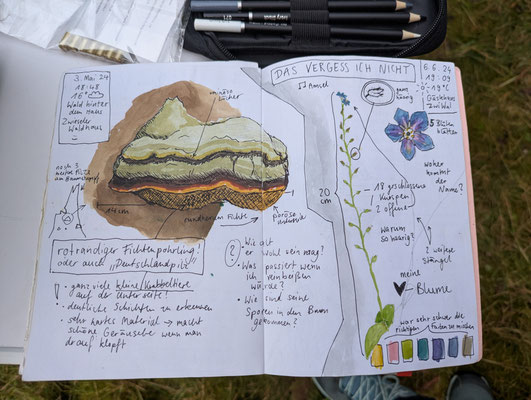 3. Mai. 24
18:48
16°
Wald hinter
dem Haus
Zwieseler
Waldhaus
noch 3
weitere Pilze
am Baumstumpf
14 cm
rund um Fichte
poröse
Unterseite
rotrandiger Fichtenporling!
oder auch "Deutschlandpilz"
! · ganz viele kleine Krabbeltiere
auf der Unterseite!
· deutliche Schichten zu erkennen
· sehr hartes Material → macht
schöne Geräusche wenn man
drauf klopft
?
· Wie alt
er wohl sein mag?
· Was passiert wenn
ich reinbeißen
würde?
· Wie sind seine
Sporen in den Baum
gekommen?
DAS VERGESS ICH NICHT
Amsel
20 cm
ganz
haarig
6.6.24
13:09
19°C
5 Blüten
blätter
woher
kommt
der
Name?
18 geschlossene
Knospen
2 offene
Warum
so haarig?
2 weitere
Stängel
meine
Blume
war sehr schwer die
richtigen Farben zu mischen